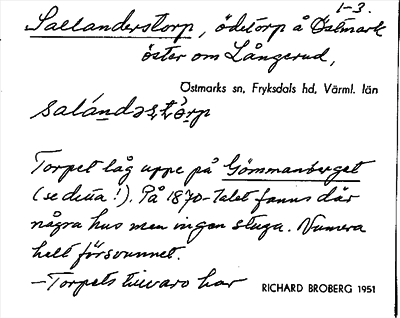 1-3.
Sallanderstorp, ödetorp å Östmark
öster om Långerud,
Östmarks sn, Fryksdals hd, Värml. län
salándəṣṭɔrp
Torpet låg uppe på Gömmanberget
(se detta!). På 1870-talet fanns där
några hus men ingen stuga. Numera
helt försvunnet.
– Torpets tillvaro har
RICHARD BROBERG 1951